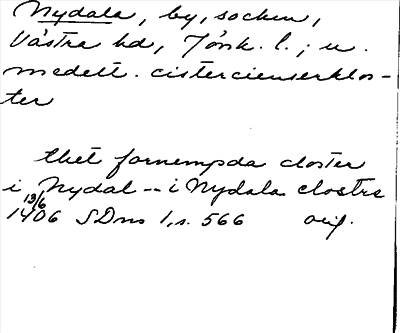 Nydala, by, socken,
Västra hd, Jönk. l.; u.
medelt. cistercienserklos-
ter
thet fornempda closter
i Nydal -- i Nydala clostre
19/6
1406 SDns 1, s. 566 orig.